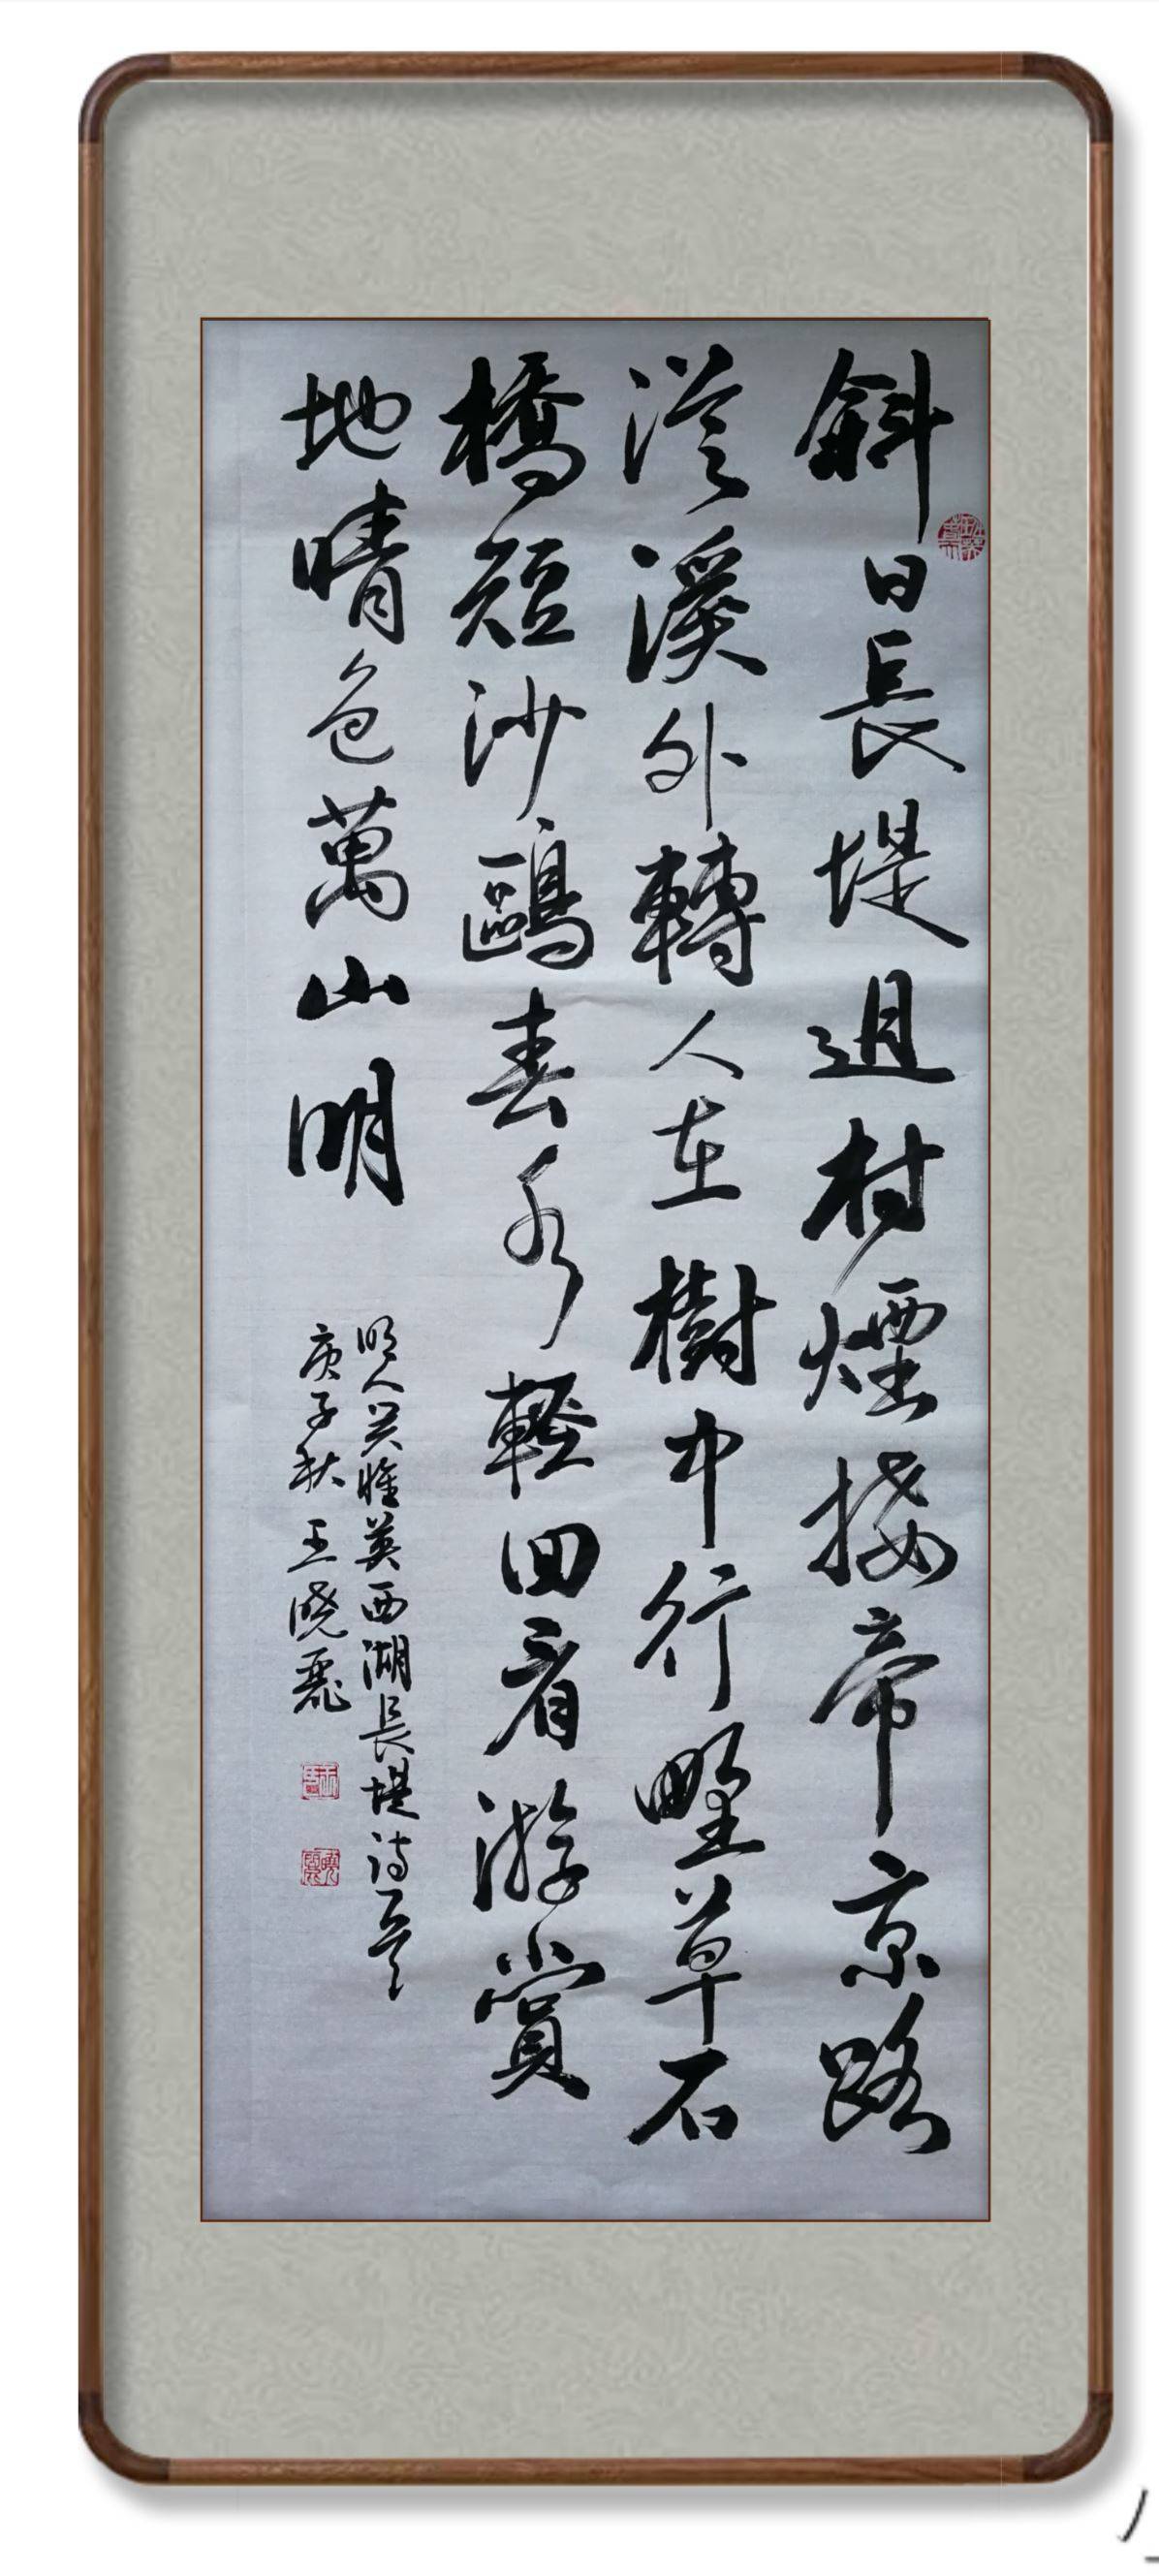 斜日長堤迥村煙接帝京路
從溪外轉人在樹中行野草石
橋短沙鷗春水輕回看游賞
地晴色萬山明
明人吳惟英西湖長堤詩一首
庚子秋王曉麗